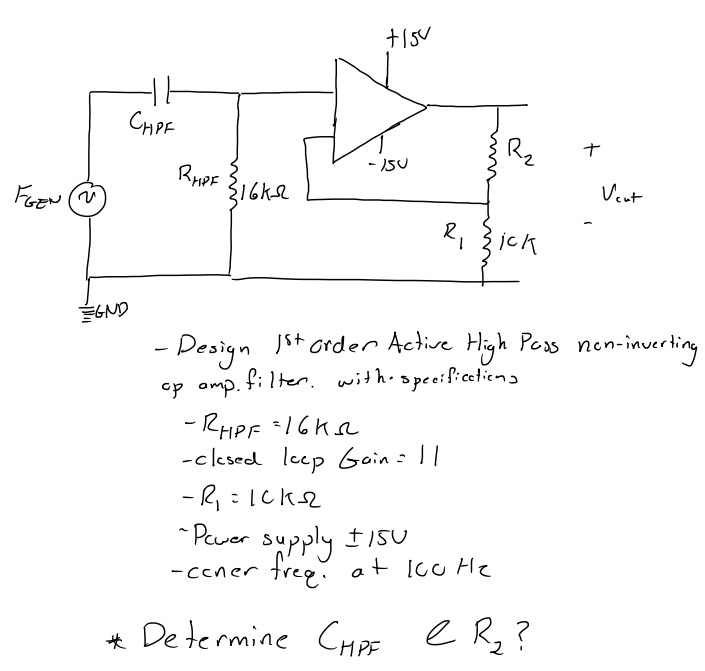 +15V
C_HPF
R_HPF
16kΩ
-15V
R_2
+
F_GEN
V_out
-
R_1
10k
GND
- Design 1st order Active High Pass non-inverting
op amp. filter. with specifications
- R_HPF = 16kΩ
- closed loop Gain = 11
- R_1 = 10kΩ
~ Power supply ±15V
- coner freq. at 100 Hz
* Determine C_HPF & R_2?